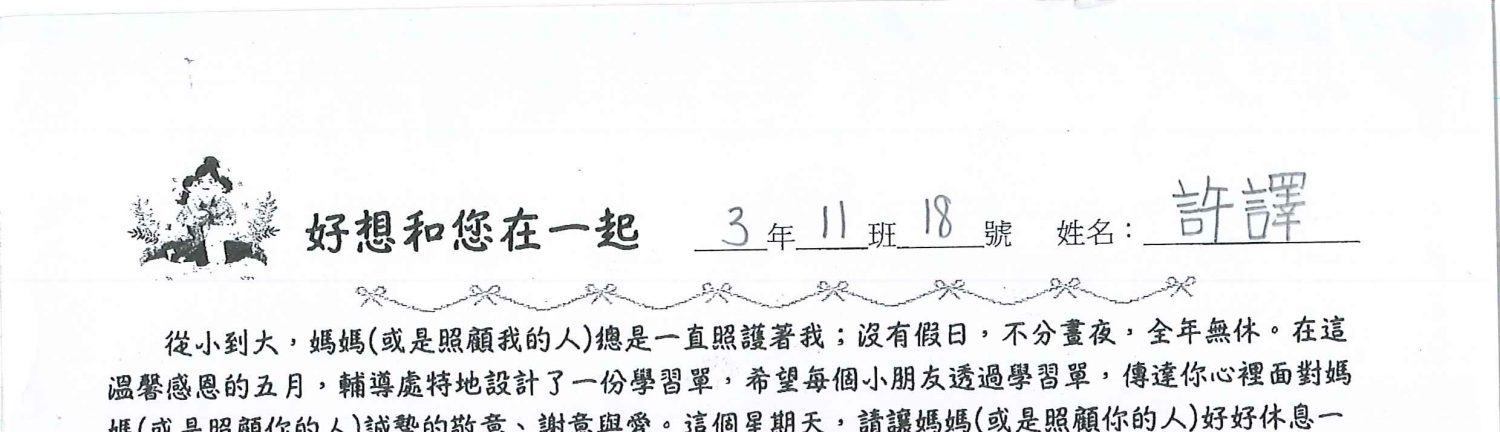 好想和您在一起 3年11班18號 姓名：許譯
從小到大，媽媽(或是照顧我的人)總是一直照護著我；沒有假日，不分晝夜，全年無休。在這
溫馨感恩的五月，輔導處特地設計了一份學習單，希望每個小朋友透過學習單，傳達你心裡面對媽
媽(或是照顧你的人)誠摯的敬意、謝意與愛。這個星期天，請讓媽媽(或是照顧你的人)好好休息一